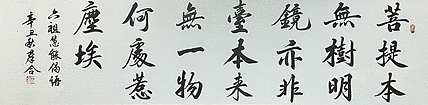 菩提本
無樹明
鏡亦非
臺本来
無一物
何處惹
塵埃
六祖慧能偈語
辛丑秋存合